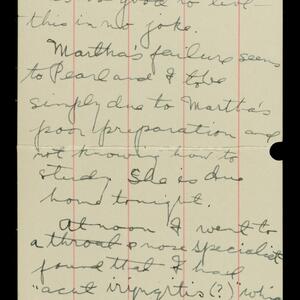 so good to live—
this in no joke.
Martha's failure seems
to Pearl and I to be
simply due to Martha's
poor preparation and
not knowing how to
study. She is due
home tonight.
At noon I went to
a throat & nose specialist
found that I had
"acut iryngitis(?)"